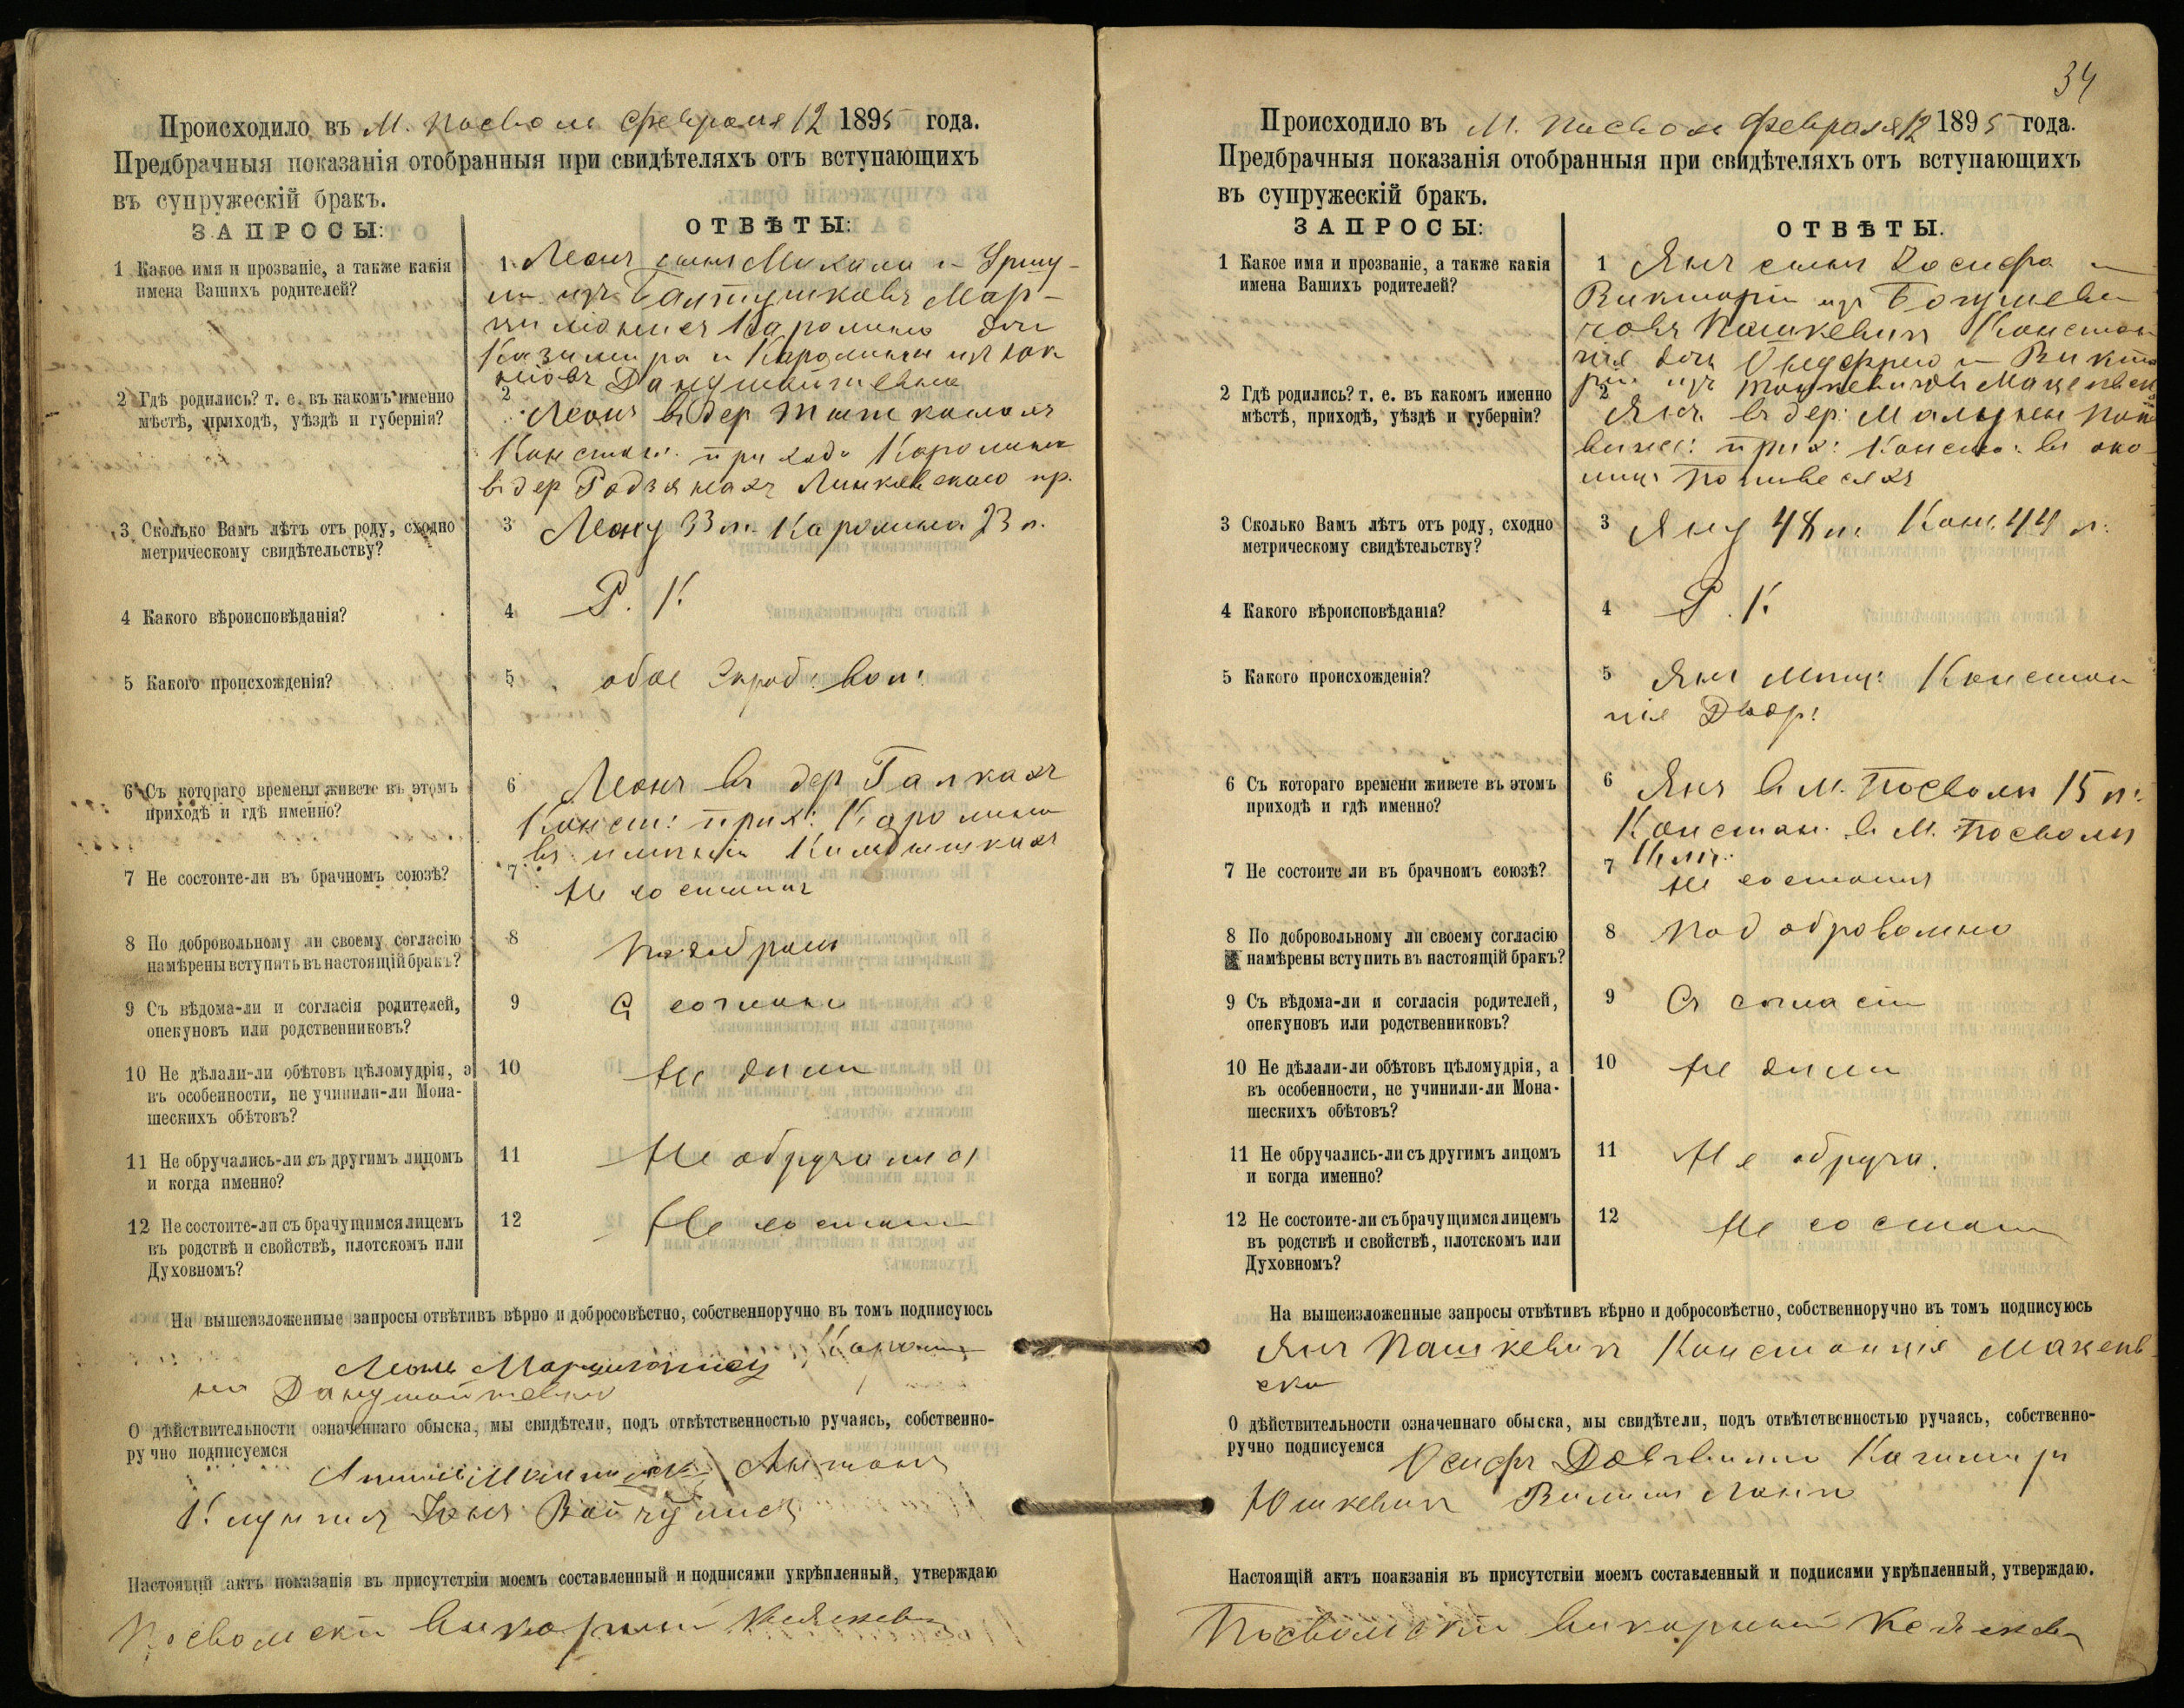 Происходило въ М. Посволе Февраля 12 1895 года.
Предбрачныя показанія отобранныя при свидѣтеляхъ отъ вступающихъ
въ супружескій бракъ.
ЗАПРОСЫ:
ОТВѢТЫ:
1 Какое имя и прозваніе, а также какія
имена Вашихъ родителей?
1 Леонъ сынъ Михала и Уршу-
ли изъ Мар-
Каролина дочь
Казимира и Каролины изъ
2 Гдѣ родились? т. е. въ какомъ именно
мѣстѣ, приходѣ, уѣздѣ и губерніи?
2
Леонъ въ дер
Констан. прихода Каролина
въ дер Линковскаго пр.
3 Сколько Вамъ лѣтъ отъ роду, сходно
метрическому свидѣтельству?
3 Леону 33 л. Каролина 23 л.
4 Какого вѣроисповѣданія?
4 Р. К
5 Какого происхожденія?
5 обое
6 Съ котораго времени живете въ этомъ
приходѣ и гдѣ именно?
6 Леонъ въ дер Галкахъ
Конст: прих: Каролина
въ имѣніи
7 Не состоите-ли въ брачномъ союзѣ?
7
Не состоитъ
8 По добровольному ли своему согласію
намѣрены вступить въ настоящій бракъ?
8
9 Съ вѣдома-ли и согласія родителей,
опекуновъ или родственниковъ?
9
10 Не дѣлали-ли обѣтовъ цѣломудрія, а
въ особенности, не учинили-ли Мона-
шескихъ обѣтовъ?
10 Не дѣли
11 Не обручались-ли съ другимъ лицомъ
и когда именно?
11 Не обручались
12 Не состоите-ли съ брачущимся лицемъ
въ родствѣ и свойствѣ, плотскомъ или
Духовномъ?
12 Не состоятъ
На вышеизложенные запросы отвѣтивъ вѣрно и добросовѣстно, собственноручно въ томъ подписуюсь
Кароли-
Леонъ
на
О дѣйствительности означеннаго обыска, мы свидѣтели, подъ отвѣтственностью ручаясь, собственно-
ручно подписуемся
Антонъ
Настоящій актъ показанія въ присутствіи моемъ составленный и подписями укрѣпленный, утверждаю
Посвольскій Викарный
34
Происходило въ М. Посволе Февраля 12 1895 года.
Предбрачныя показанія отобранныя при свидѣтеляхъ отъ вступающихъ
въ супружескій бракъ.
ЗАПРОСЫ:
ОТВѢТЫ.
1 Какое имя и прозваніе, а также какія
имена Вашихъ родителей?
1 Янъ сынъ Іосифа и
Викторіи изъ Богушеви-
човъ Пашкевичъ Констан
ція дочь Онуфрею и Викто
ріи изъ
2 Гдѣ родились? т. е. въ какомъ именно
мѣстѣ, приходѣ, уѣздѣ и губерніи?
2
Янъ въ дер:
прих: Конста: въ око-
лицѣ
3 Сколько Вамъ лѣтъ отъ роду, сходно
метрическому свидѣтельству?
3 Яну 48 л. Конс. 44 л.
4 Какого вѣроисповѣданія?
4 Р. К
5 Какого происхожденія?
5 Янъ Мѣщ: Констан
ція Двор:
6 Съ котораго времени живете въ этомъ
приходѣ и гдѣ именно?
6 Янъ в М. Посволѣ 15 л:
Констан. в М. Посволѣ
7 Не состоите ли въ брачномъ союзѣ?
7
Не состоитъ
8 По добровольному ли своему согласію
намѣрены вступить въ настоящій бракъ?
8 Подобровольно
9 Съ вѣдома-ли и согласія родителей,
опекуновъ или родственниковъ?
9 Съ согласія
10 Не дѣлали-ли обѣтовъ цѣломудрія, а
въ особенности, не учинили-ли Мона-
шескихъ обѣтовъ?
10 Не дѣли
11 Не обручались-ли съ другимъ лицомъ
и когда именно?
11 Не обруча.
12 Не состоите-ли съ брачущимся лицемъ
въ родствѣ и свойствѣ, плотскомъ или
Духовномъ?
12 Не состоятъ
На вышеизложенные запросы отвѣтивъ вѣрно и добросовѣстно, собственноручно въ томъ подписуюсь
Янъ Пашкевичъ Констанція Маженв-
ска
О дѣйствительности означеннаго обыска, мы свидѣтели, подъ отвѣтственностью ручаясь, собственно-
ручно подписуемся Осифъ Казимиръ
Юшкевичъ
Настоящій актъ поакзанія въ присутствіи моемъ составленный и подписями укрѣпленный, утверждаю.
Посвольскій Викарный